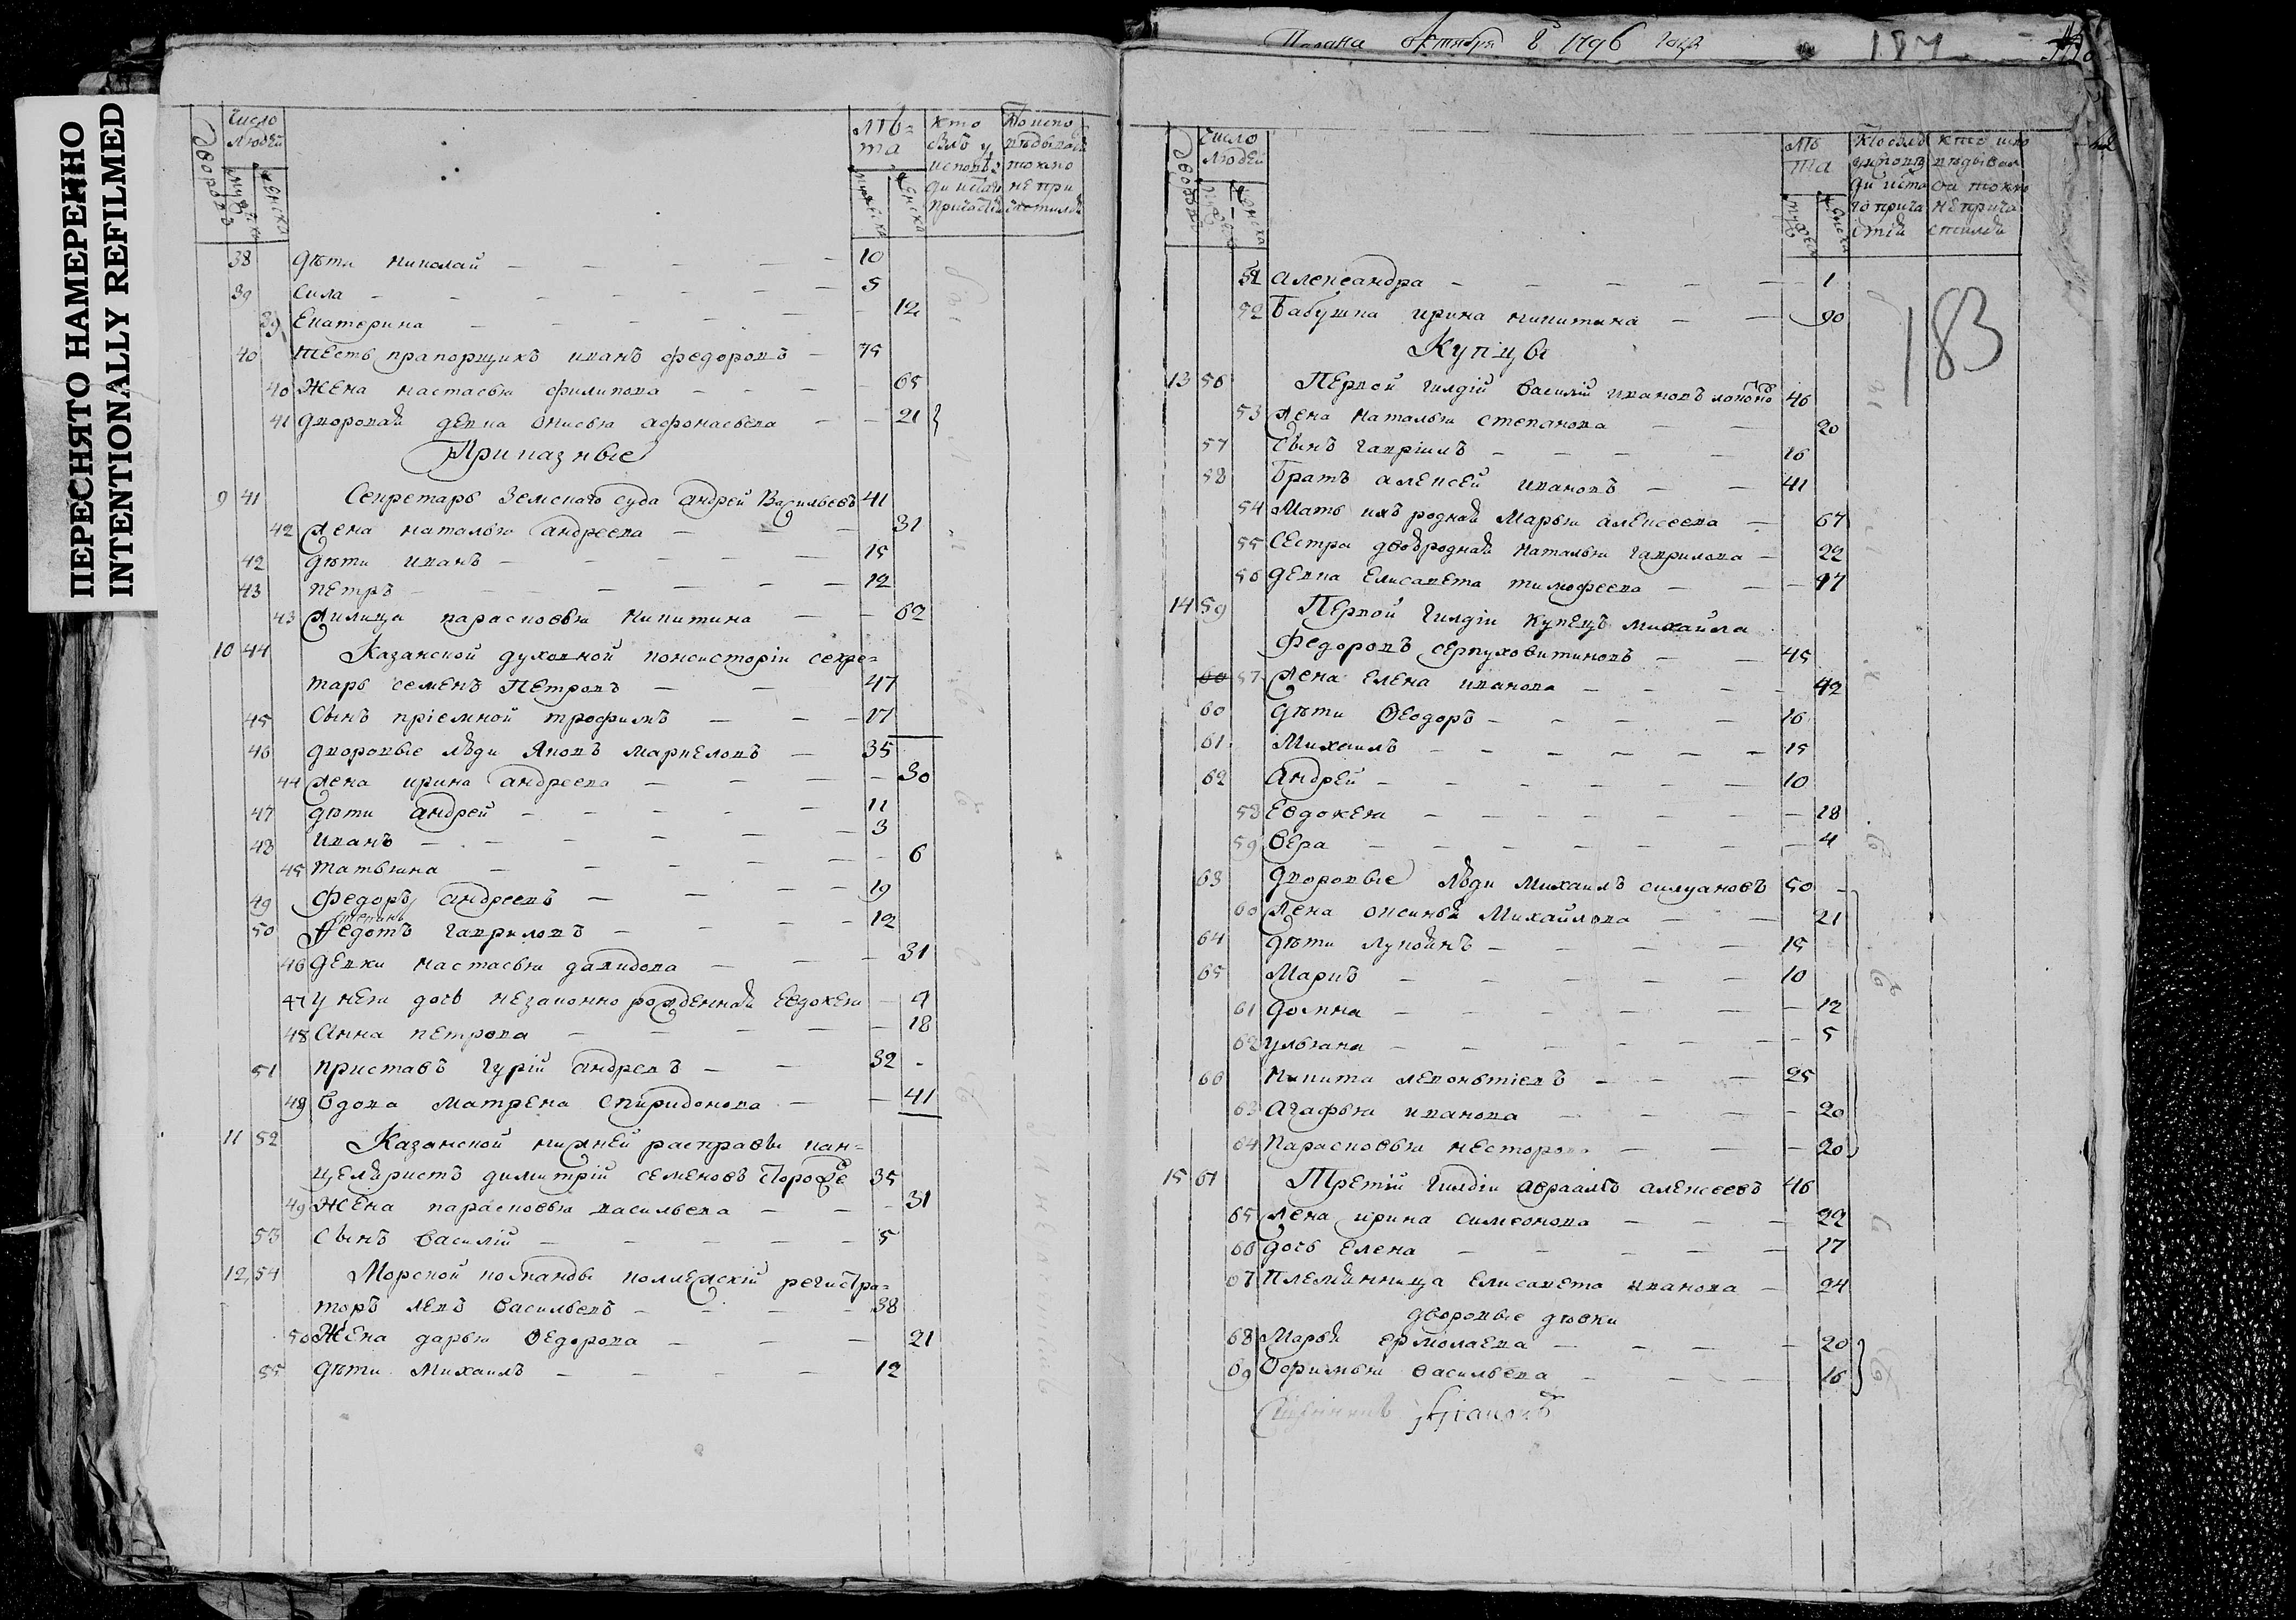 ПЕРЕСНЯТО НАМЕРЕННО
INTENTIONALLY REFILMED
дворовъ
Число людей
мужеска
женска
лѣта
мужеска
женска
кто былъ у исповѣди и святаго причастія
кто исповѣдывался токмо не причастился
38 дѣти николай 10
39 сила 5
39 Екатерина 12
40 тесть прапорщикъ иванъ федоровъ 75
40 жена настасья филипова 65
41 дворовая девка анисья афонасьева 21
Приказные
9 41 Секретарь земскаго суда андрей Васильевъ 41
42 жена наталья андреева 31
42 дѣти иванъ 15
43 петръ 12
43 жилица парасковья никитина 62
10 44 Казанской духовной консисторіи секре=
тарь семенъ Петровъ 47
45 сынъ пріемной трофимъ 17
46 дворовые люди Яковъ маркеловъ 35
44 жена ирина андреева 30
47 дѣти андрей 11
48 иванъ 3
45 татьяна 6
49 федоръ андреевъ 19
степанъ
50 федотъ гавриловъ 12
46 девки настасья давидова 31
47 у нея дочь незаконно рожденная Евдокея 4
48 Анна петрова 18
51 приставъ гурій андреевъ 32
48 вдова матрена спиридонова 41
11 52 Казанской нижней расправы кан=
целяристъ димитрій семеновъ 35
49 жена парасковья васильева 31
53 сынъ василій 5
12 54 Морской команды коллежскій регистра=
торъ левъ васильевъ 38
50 жена дарья федорова 21
55 дѣти михаилъ 12
октября 8 1796 года
187
183
дворовъ
Число людей
мужеска
женска
лѣта
мужеска
женска
кто былъ у исповѣди и святаго причастія
кто исповѣдывался токмо не причастился
51 александра 1
52 бабушка ирина никитина 90
Купцы
13 56 Первой гилдіи василій ивановъ 46
53 жена наталья степанова 20
57 сынъ гавріилъ 16
58 братъ алексей ивановъ 41
54 Мать ихъ родная марья алексеева 67
55 Сестра двоюродная наталья гаврилова 22
56 девка елисавета тимофеева 47
14 59 Первой гилдіи купецъ михайла
федоровъ серпуховитиновъ 45
60 57 жена елена иванова 42
60 дѣти феодоръ 16
61 Михаилъ 15
62 андрей 10
58 Евдокея 18
59 вера 4
63 дворовые люди михаилъ силуановъ 50
60 жена аксинья михайлова 21
64 дѣти лукоянъ 15
65 Маркъ 10
61 домна 12
62 ульяна 5
66 никита леоньтіевъ 25
63 агафья иванова 20
64 парасковья 20
15 67 Третій гилдіи авраамъ алексеевъ 46
65 жена ирина симеонова 22
66 дочь елена 17
67 племянница елисавета иванова 24
дворовые дѣвки
68 Марья ермолаева 20
69 Ефимья васильева 16